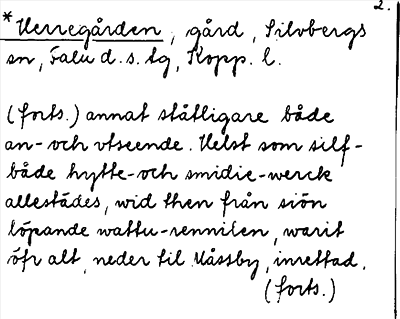 2.
*Herregården, gård, Silvbergs
sn, Falu d. s. tg, Kopp. l.
(forts.) annat ståtligare både
an- och vtseende. Helst som silf-
både hytte- och smidie-werck
allestädes, wid then från siön
löpande wattu-rennilen, warit
öfr alt, neder til Måssby, inrettad.
(forts.)